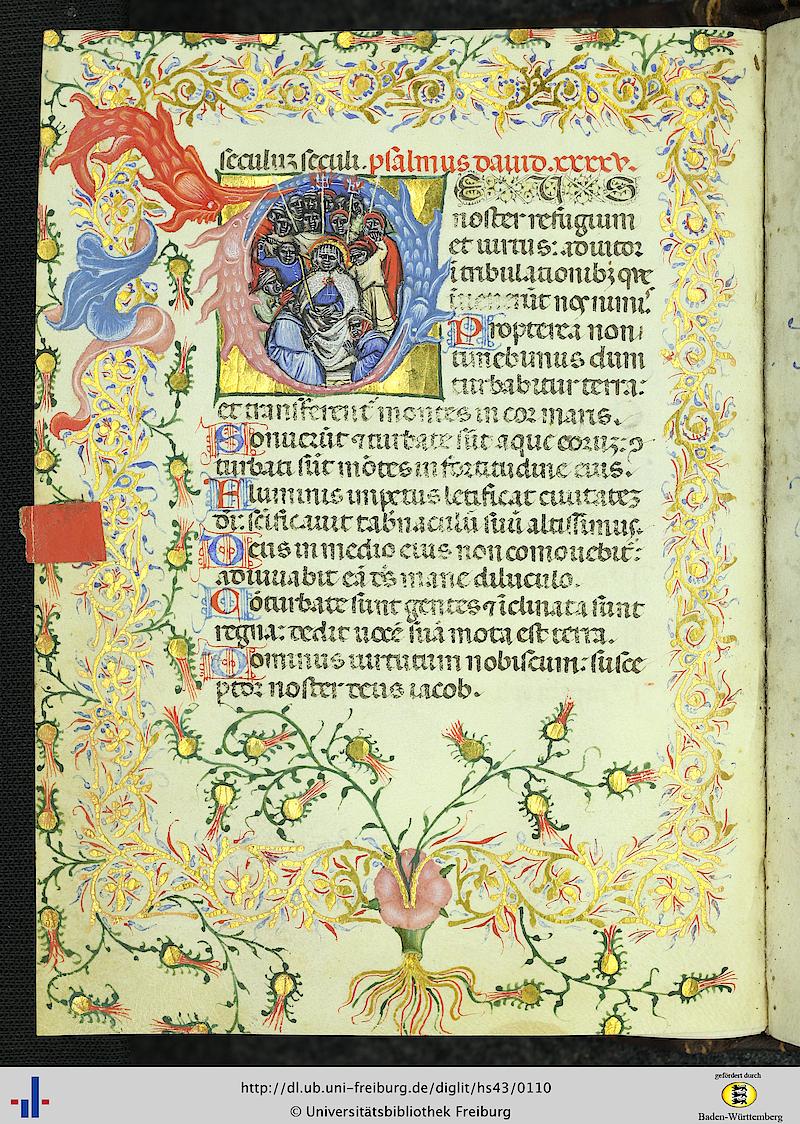 seculuz seculi. psalmus david .xxxxv.
DEUS
noster refugium
et uirtus: adiutor
i tribulationibz que
inuenerūt nos nimis.
Propterea non
timebimus dum
turbabitur terra:
et transferent montes in cor maris.
Sonuerūt 7 turbate sūt aque eoruz: 9
turbati sūt mōtes in fortitudine eius.
Fluminis impetus letificat ciuitatez
di: scificauit tabnaculū suū altissimus.
Deus in medio eius non comouebit:
adiuuabit eā ds mane diluculo.
Cōturbate sunt gentes 7 iclinata sunt
regna: dedit uocē suā mota est terra.
Dominus uirtutum nobiscum: susce
ptor noster deus iacob.
http://dl.ub.uni-freiburg.de/diglit/hs43/0110
© Universitätsbibliothek Freiburg
gefördert durch
Baden-Württemberg